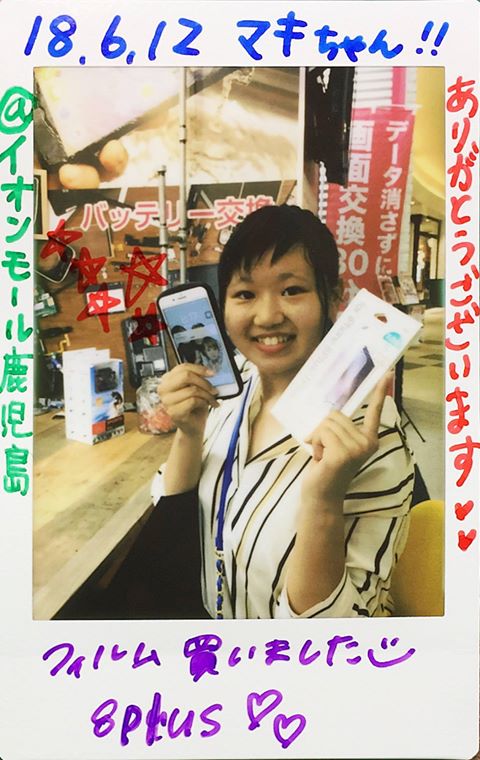 18.6.12 マキちゃん!!
@イオンモール鹿児島
ありがとうございます♡♡
バッテリー交換
データ消さずに
画面交換30
フィルム 買いました
8plus ♡♡